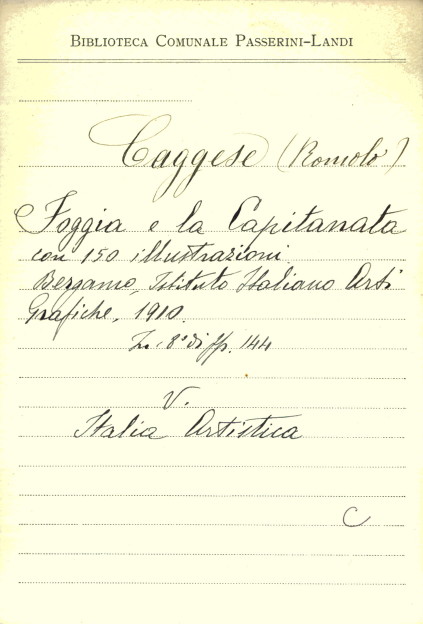 BIBLIOTECA COMUNALE PASSERINI-LANDI
Caggese (Romolo)
Foggia e la Capitanata
con 150 illustrazioni
Bergamo, Istituto Italiano Arti
Grafiche, 1910.
In 8° di pp. 144
V.
Italia Artistica
C